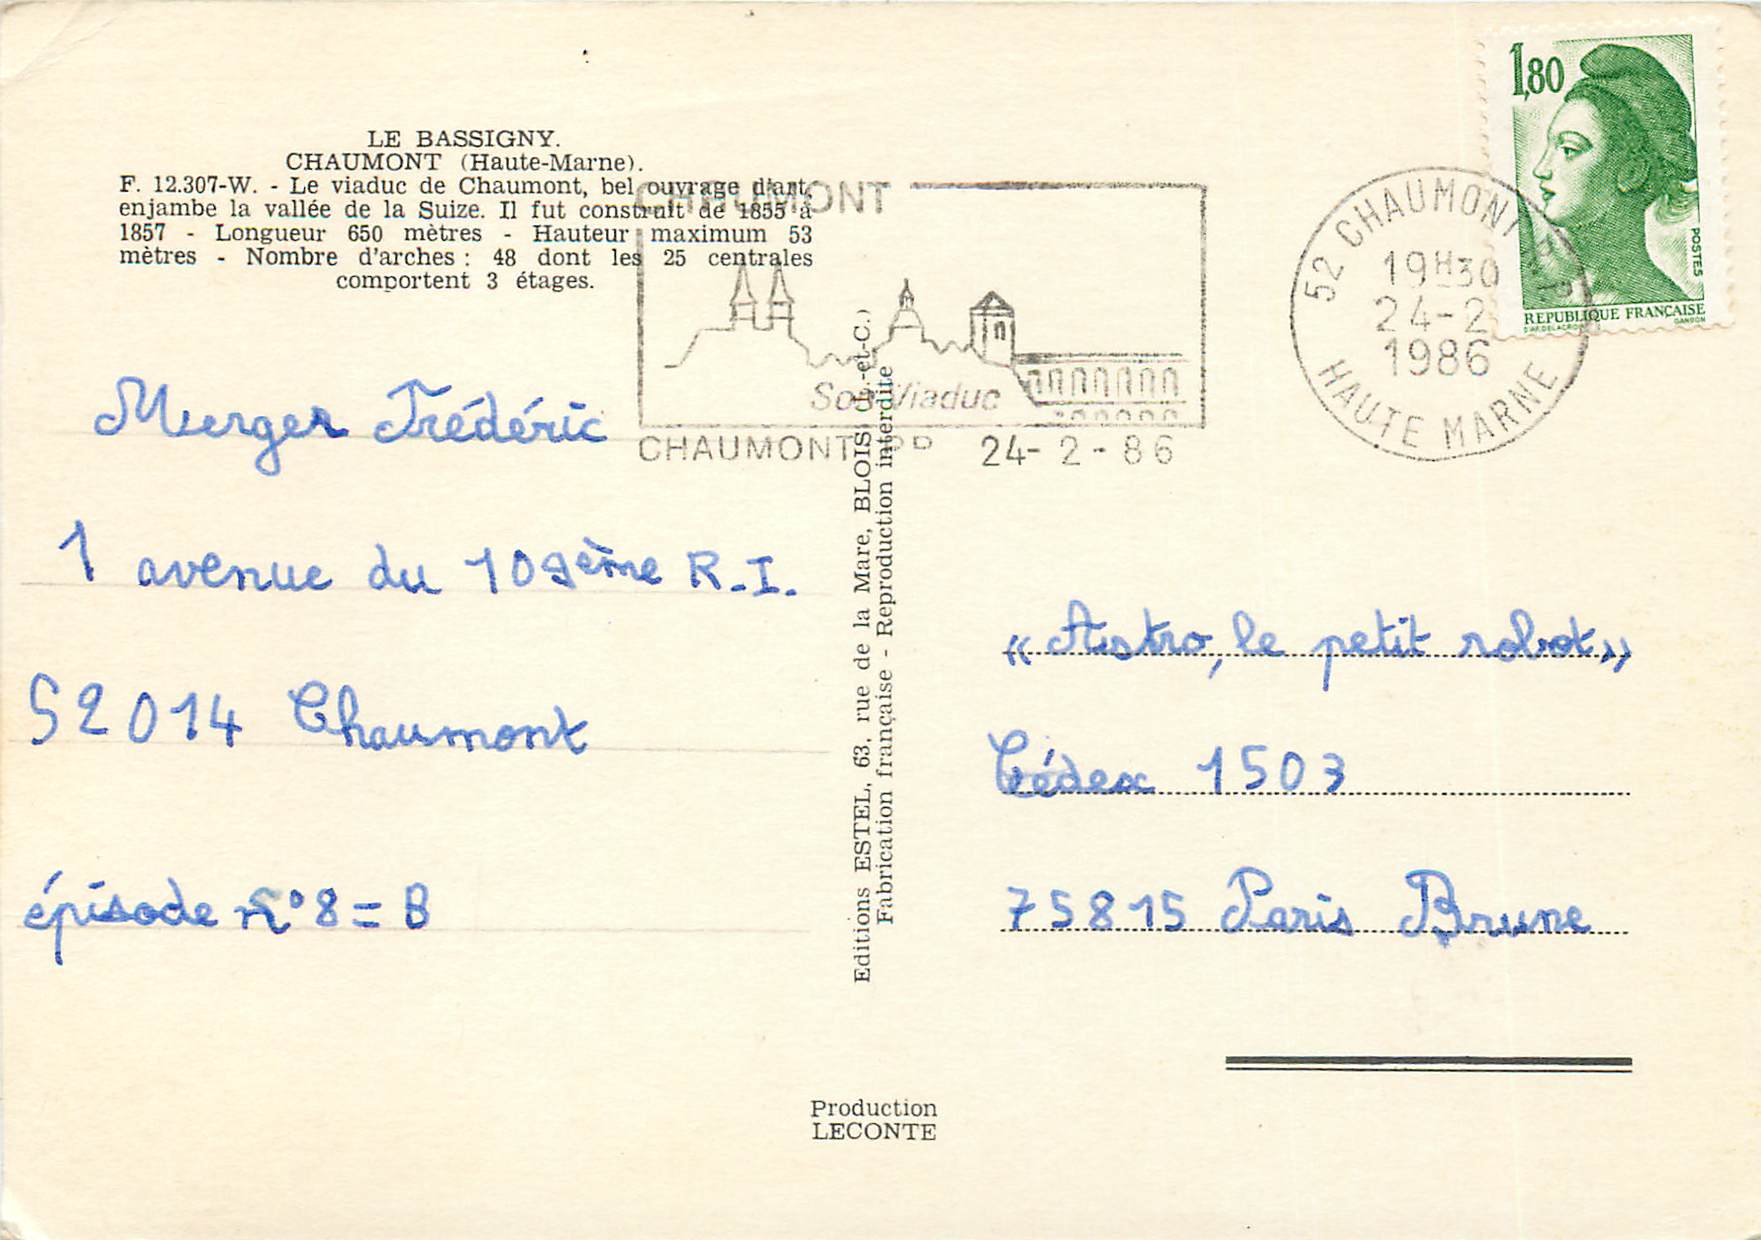 LE BASSIGNY.
CHAUMONT (Haute-Marne).
F. 12.307-W. - Le viaduc de Chaumont, bel ouvrage d'art,
enjambe la vallée de la Suize. Il fut construit de 1855 à
1857 - Longueur 650 mètres - Hauteur maximum 53
mètres - Nombre d'arches : 48 dont les 25 centrales
comportent 3 étages.
CHAUMONT
Son Viaduc
CHAUMONT PP 24-2-86
1,80
POSTES
REPUBLIQUE FRANÇAISE
52 CHAUMONT R.P.
19H30
24-2
1986
HAUTE MARNE
Merger Frédéric
1 avenue du 109ème R.I.
52014 Chaumont
épisode n°8 = B
Editions ESTEL, 63, rue de la Mare, BLOIS (L.-et-C.)
Fabrication française - Reproduction interdite
« Astro, le petit robot »
Cédex 1503
75815 Paris Brune
Production
LECONTE